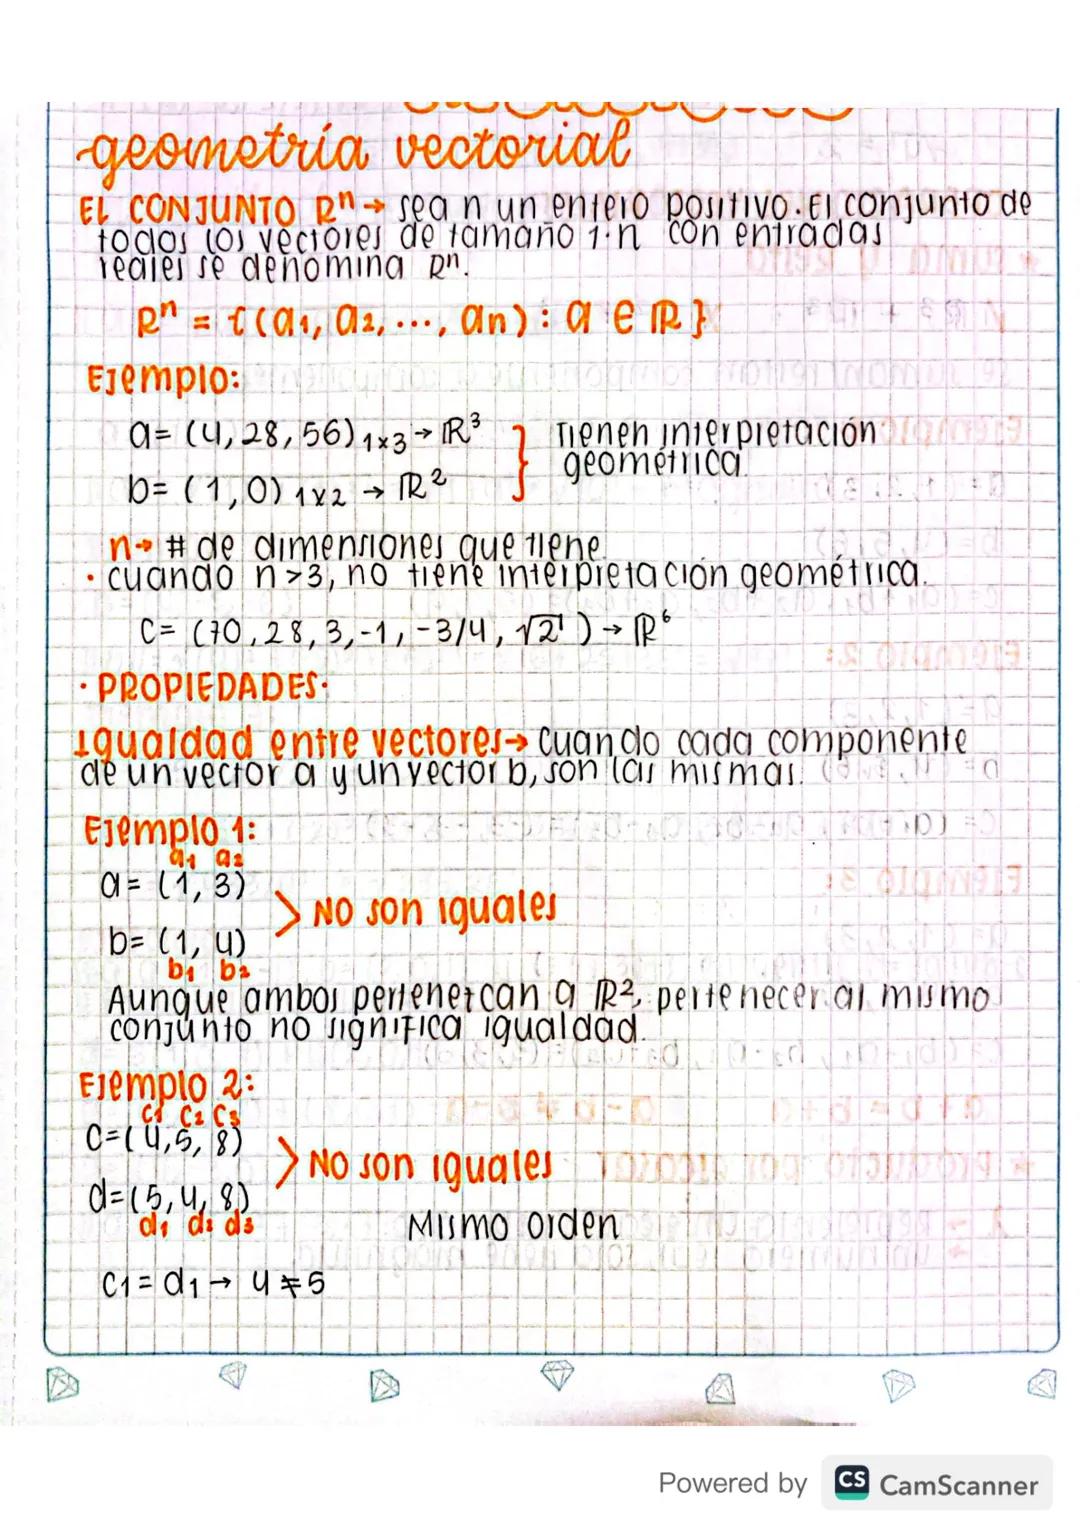 geometría vectorial
EL CONJUNTO Rⁿ → sea n un entero positivo. El conjunto de
todos los vectores de tamaño 1·n con entradas
reales se denomina Rⁿ.
Rⁿ = {(a₁, a₂, ..., an) : a ∈ ℝ}
Ejemplo:
a= (4, 28, 56) ₁ₓ₃ → ℝ³ } Tienen interpretación
geométrica.
b= (1, 0) ₁ₓ₂ → ℝ²
n→ # de dimensiones que tiene.
· cuando n>3, no tiene interpretación geométrica.
C= (70, 28, 3, -1, -3/4, √2) → ℝ⁶
· PROPIEDADES·
Igualdad entre vectores→ Cuando cada componente
de un vector a y un vector b, son las mismas.
Ejemplo 1:
a₁ a₂
a= (1, 3)
> NO son iguales
b= (1, 4)
b₁ b₂
Aunque ambos pertenetcan a ℝ², pertenecer al mismo
conjunto no significa igualdad.
Ejemplo 2:
C₁ C₂ C₃
C=(4, 5, 8)
> NO son iguales
d=(5, 4, 8)
d₁ d₂ d₃
Mismo orden
C₁ = d₁ → 4 ≠ 5
Powered by CS CamScanner